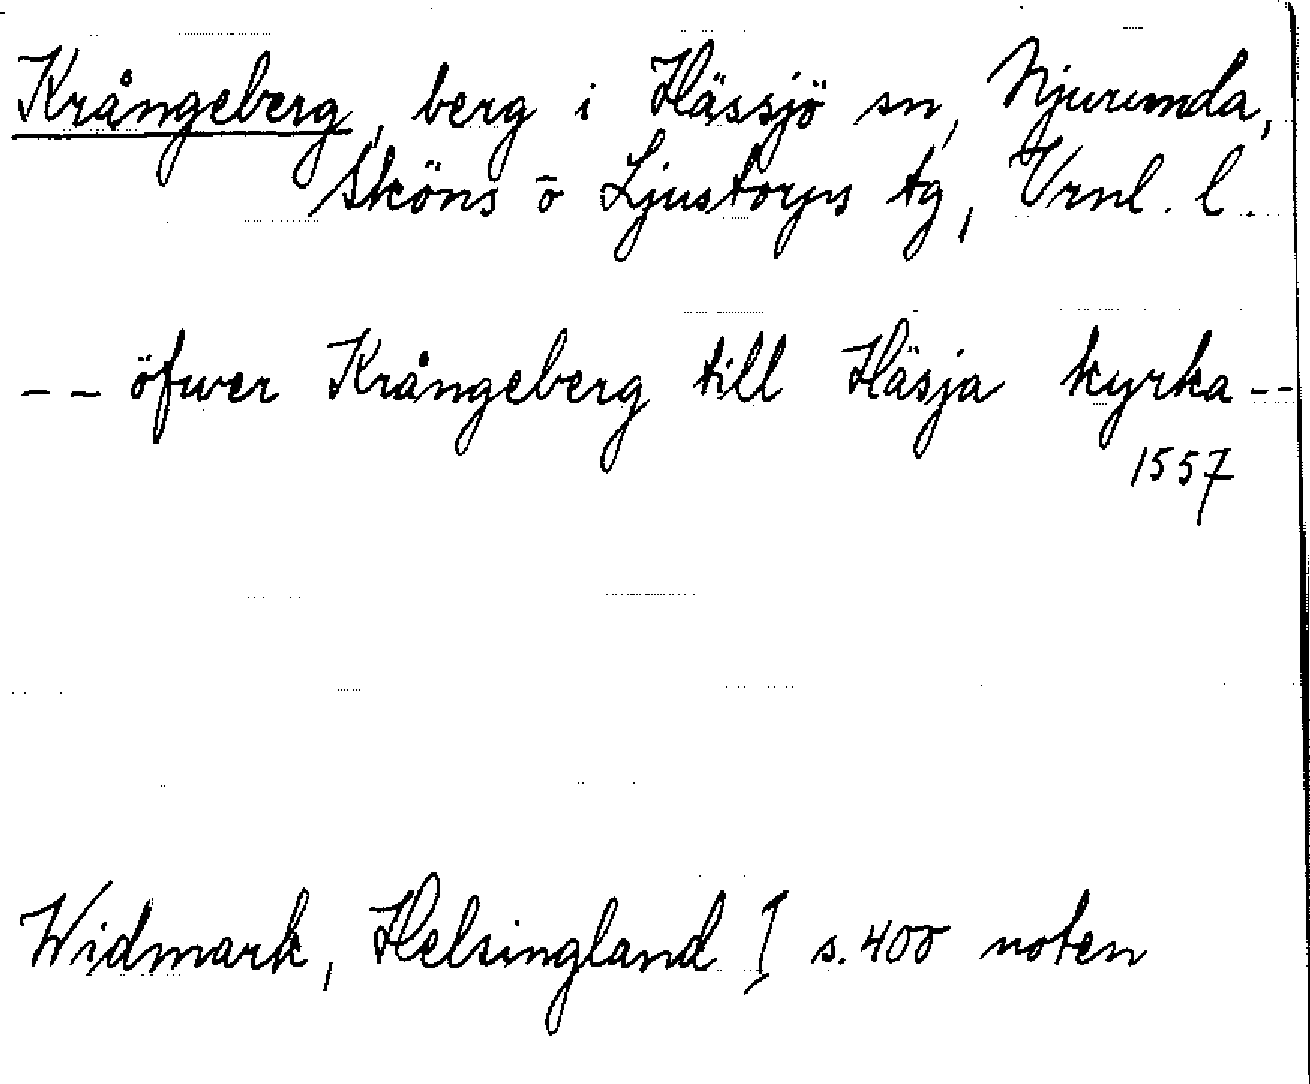 Krångeberg, berg i Hässjö sn, Njurunda,
Sköns o Ljustorps tg, Vrnl. l.
-- öfwer Krångeberg till Häsja kyrka --
1557
Widmark, Helsingland I s. 400 noten